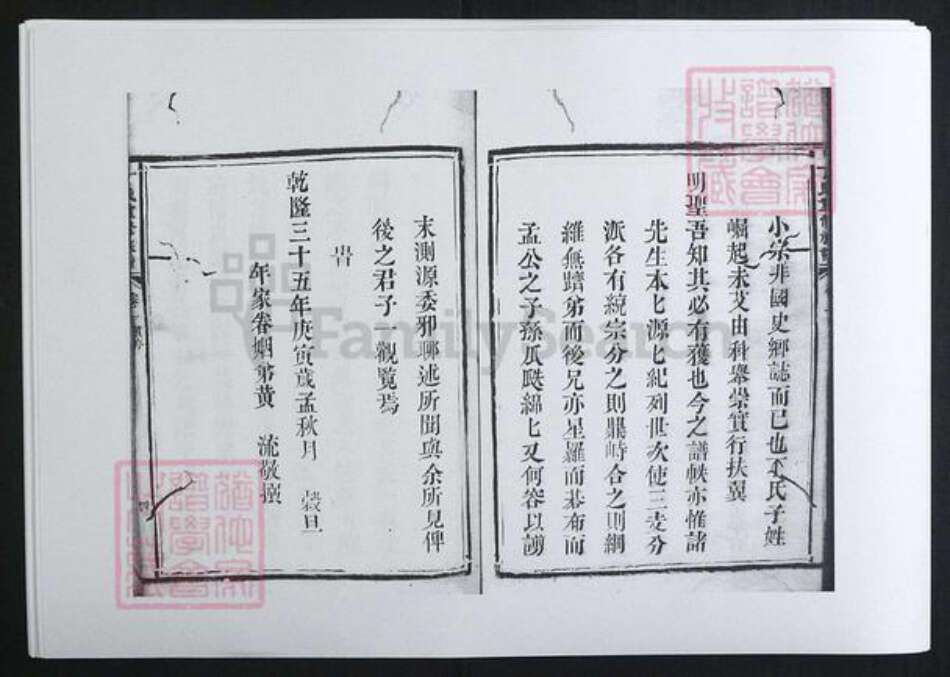 小宗非國史鄉誌而已也 氏子姓
崛起未艾由科舉崇實行扶翼
明聖吾知其必有獲也今之譜帙亦惟諸
先生本匕源匕紀列世次使三支分
派各有統宗分之則鼎峙合之則綱
維無躋弟而後兄亦星羅而碁布而
孟公之子孫瓜瓞綿匕又何容以謭
末測源委邪聊述所聞與余所見俾
後之君子一觀覧焉
旹
乾隆三十五年庚寅歲孟秋月 穀旦
年家眷姻弟黃 流敬撰
FamilySearch